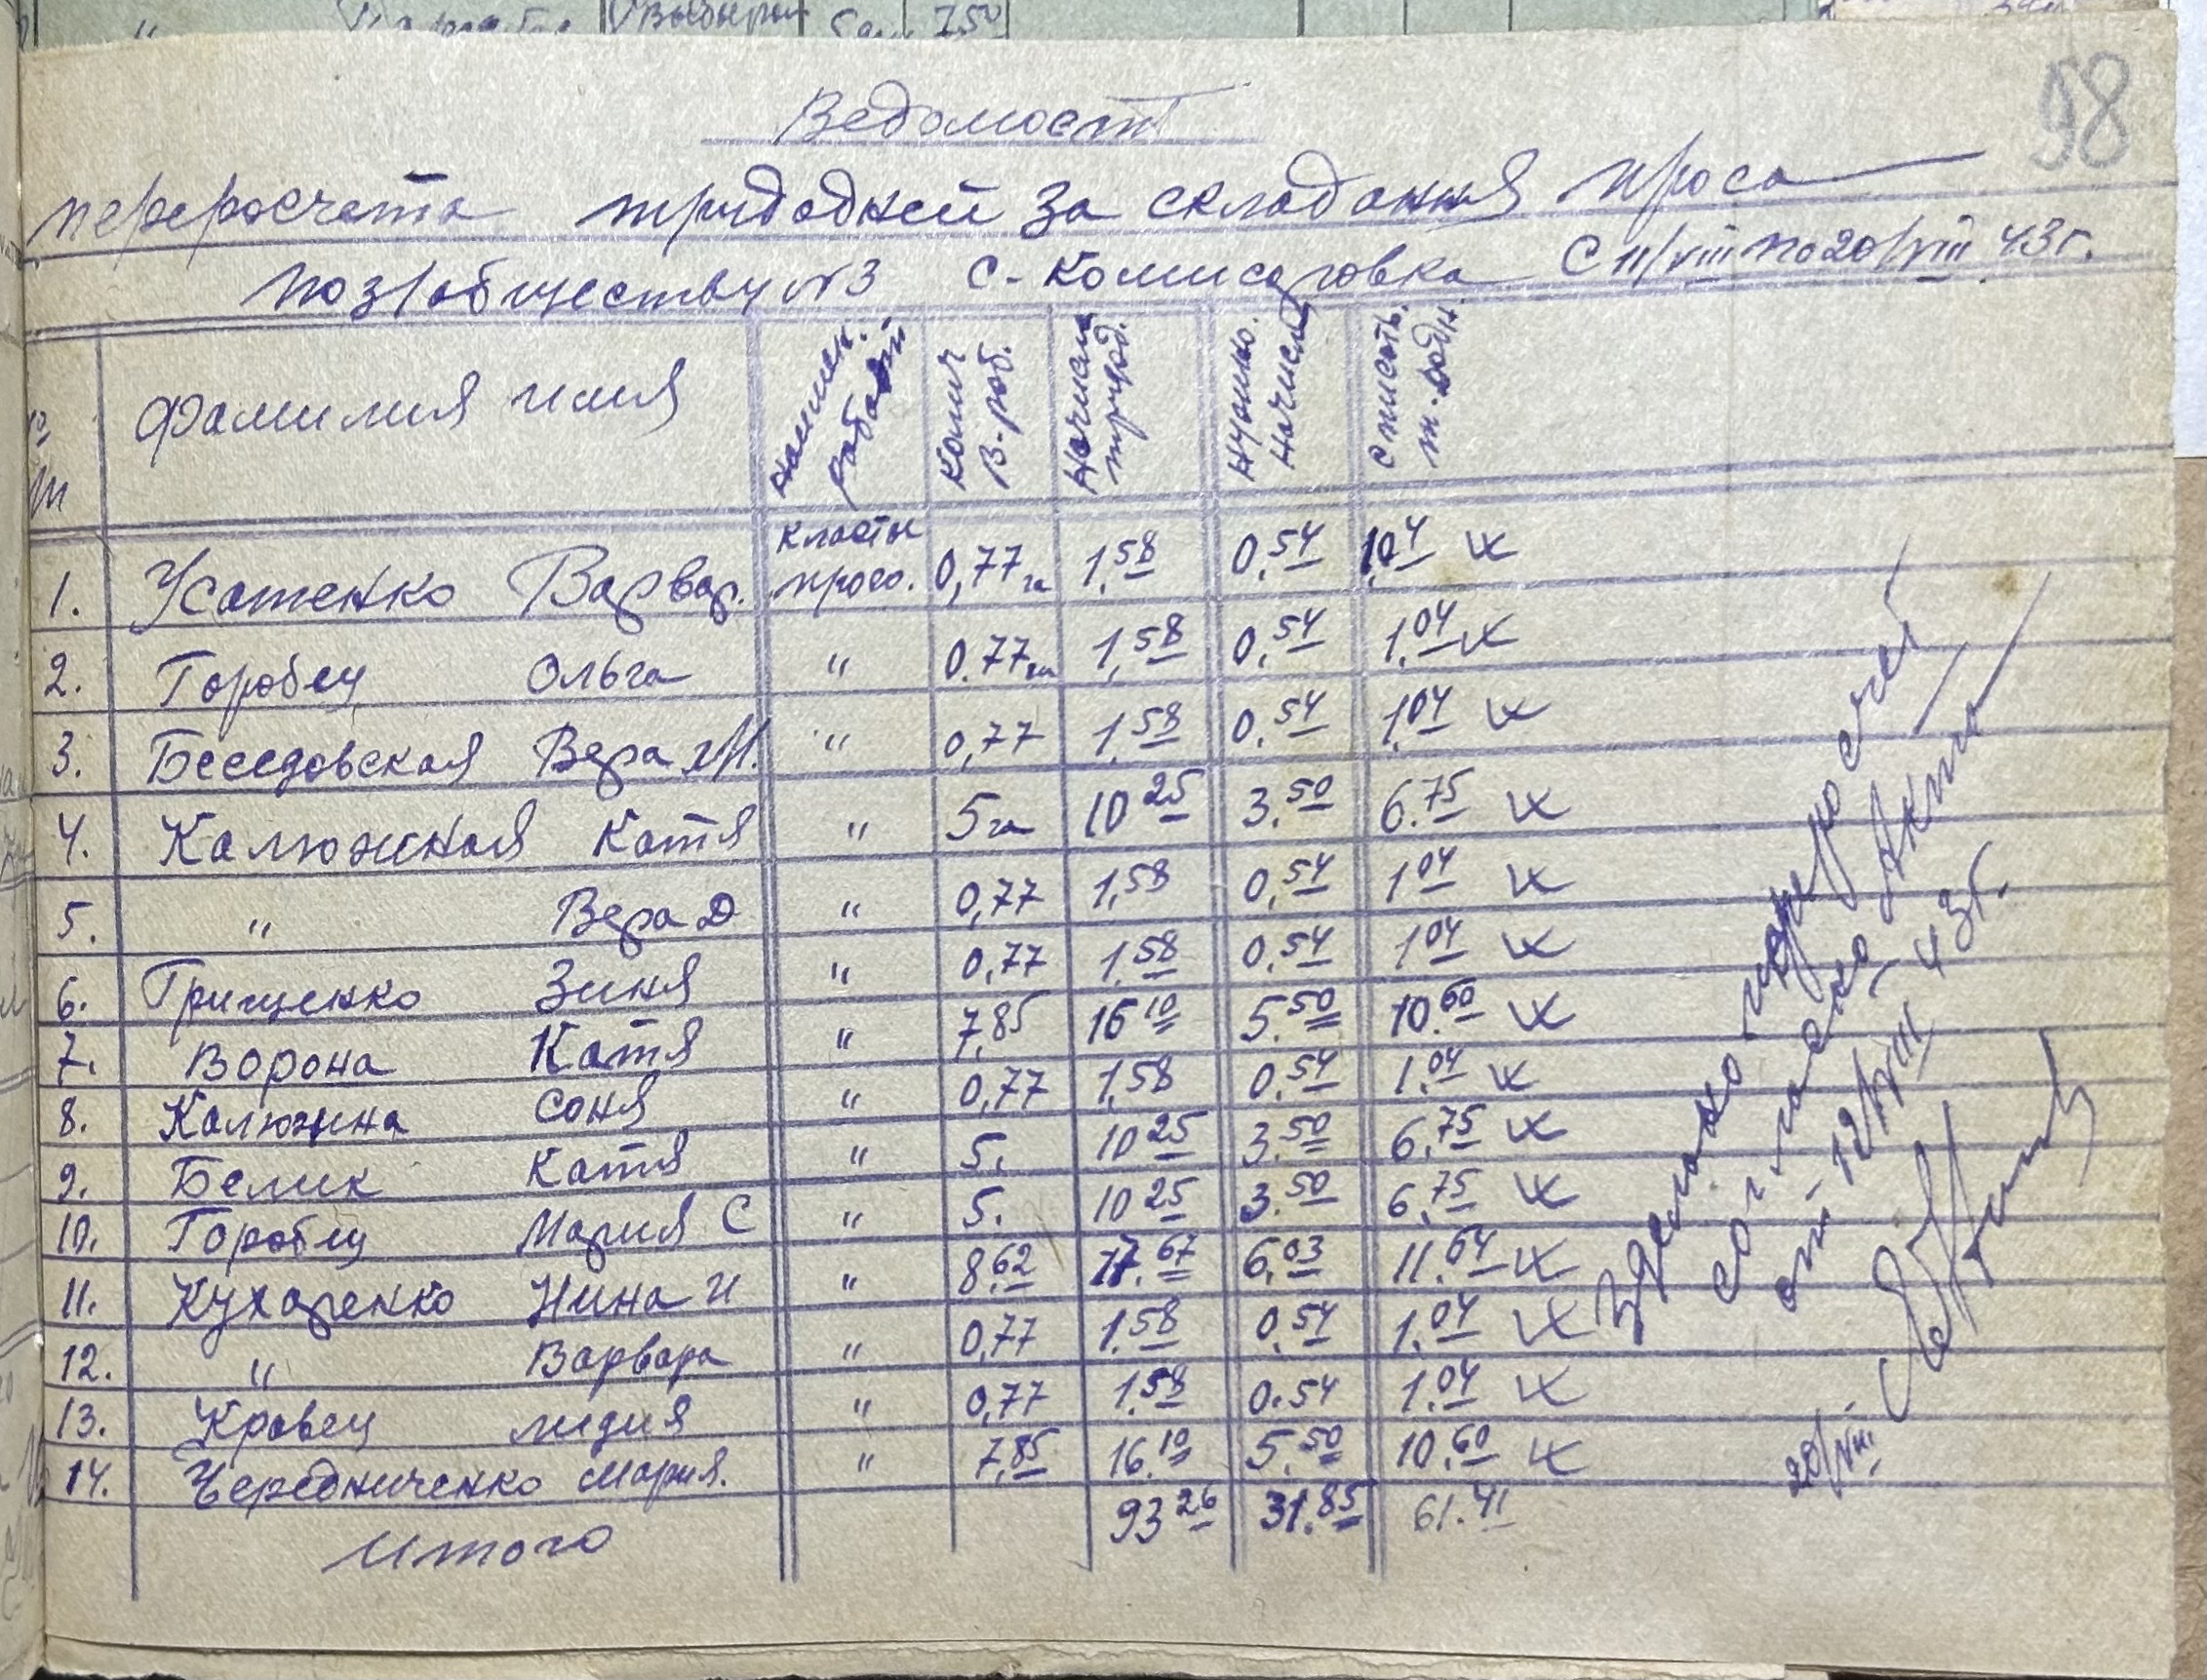 98
Ведомост
переросчета трудодней за складання проса
по з/обществу №3 с-Комисаровка С 11/VIII по 20/VIII 43 г.
№ фамилия имя Наимен. работи Колич в-роб. Начисл трудод. Нужно. Начисл Списать. т. додн.
1. Усатенко Варвар. класть просо. 0,77 га 1.58 0.54 1.04
2. Горобец Ольга " 0.77 га 1.58 0.54 1.04
3. Беседовская Вера М. " 0,77 1.58 0.54 1.04
4. Калюжная Катя " 5 га 10 25 3.50 6.75
5. " Вера Д " 0,77 1,58 0.54 1 04
6. Грищенко Зиня " 0,77 1.58 0.54 1 04
7. Ворона Катя " 7,85 16 10 5.50 10.60
8. Калюжна Соня " 0,77 1,58 0.54 1.04
9. Белик Катя " 5. 10 25 3.50 6.75
10. Горобец Мария С " 5. 10 25 3.50 6.75
11. Кухаренко Нина И " 8.62 17.67 6.03 11.64
12. " Варвара " 0,77 1.58 0.54 1.04
13. Кравец лидия " 0,77 1.58 0.54 1.04
14. Чередниченко Мария. " 7,85 16.10 5.50 10.60
Итого 93 26 31.85 61.41
Зделано переросчет
согласно Акта
от 12/VIII 43 г.
20/VIII